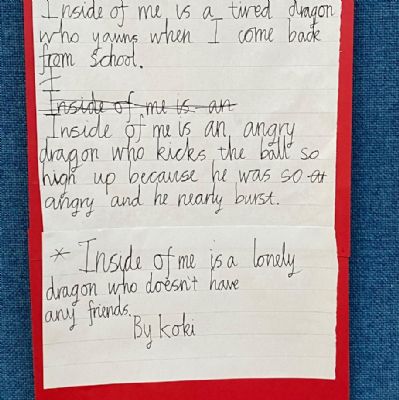 Inside of me is a tired dragon
who yawns when I come back
from school.
I
Inside of me is an
Inside of me is an angry
dragon who kicks the ball so
high up because he was so at
angry and he nearly burst.
* Inside of me is a lonely
dragon who doesn't have
any friends.
By Koki